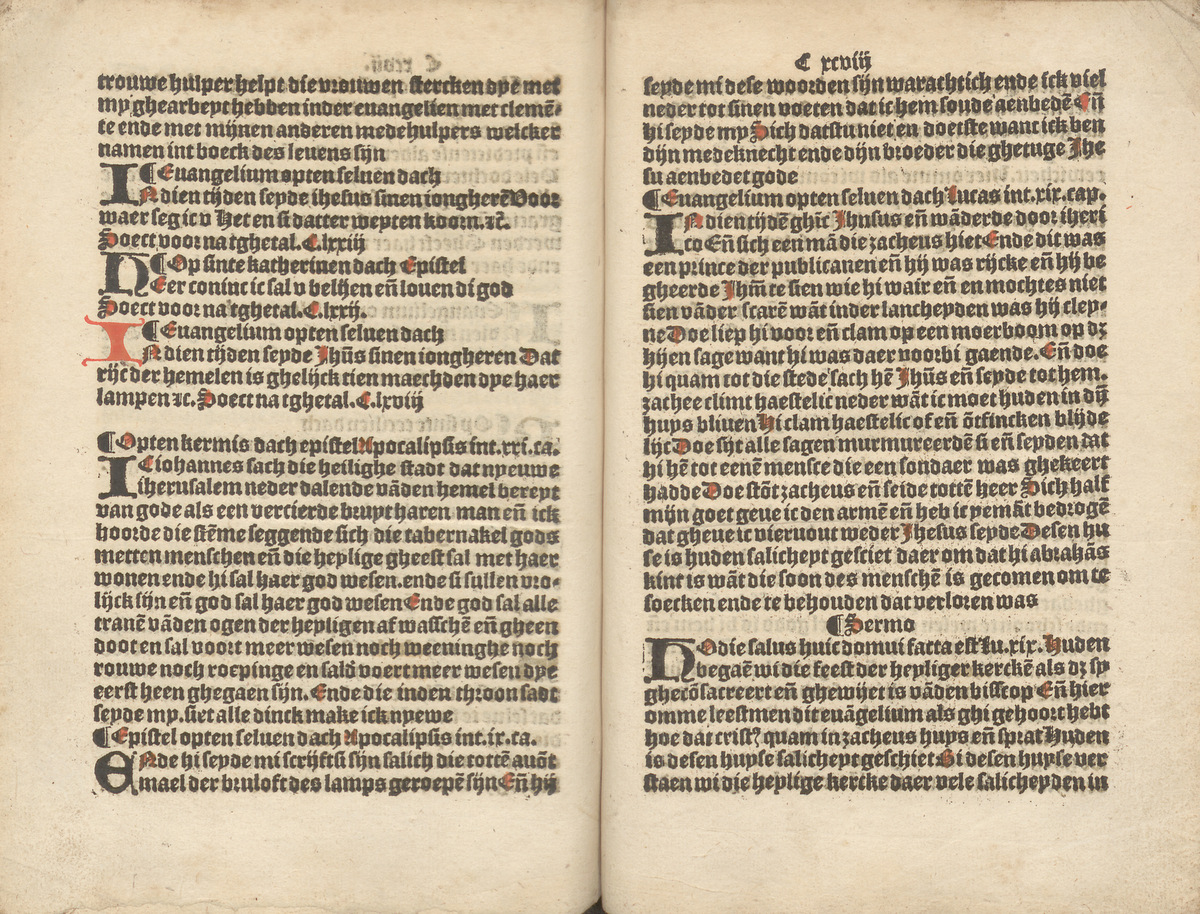 trouwe hulper helpt die vrouwen stercken dye met
my ghearbeyt hebben inder euangelien met clemē-
te ende met mijnen anderen medehulpers welcker
namen int boeck des leuens sijn
¶ Euangelium opten seluen dach
INdien tijden seyde ihesus sinen iongherē Voor
waer seg ic v Het en si datter weyten koorn. ⁊c̄.
Soect voor na tghetal. C.lxxiij
¶ Op sinte katherinen dach Epistel
HEer coninc ic sal v belijen eñ louen di god
Soect voor na tghetal. C.lxxij.
¶ Euangelium opten seluen dach
INdien tijden seyde Jhūs sinen iongheren Dat
rijc der hemelen is ghelijck tien maechden dye haer
lampen ⁊c. Soect na tghetal. C.lxviij
¶ Opten kermis dach epistel Apocalipsis int.xxi.ca.
IC iohannes sach die heilighe stadt dat nyeuwe
iherusalem neder dalende vādē hemel bereyt
van gode als een vercierde bruyt haren man eñ ick
hoorde die stēme seggende sich die tabernakel gods
metten menschen eñ die heylige gheest sal met haer
wonen ende hi sal haer god wesen. ende si sullen vro-
lijck sijn eñ god sal haer god wesen Ende god sal alle
tranē vādē ogen der heyligen af wasschē eñ gheen
doot en sal voort meer wesen noch weeninghe noch
rouwe noch roepinge en sald voert meer wesen dye
eerst heen ghegaen sijn. Ende die inden throon sadt
seyde my. siet alle dinck make ick nyewe
¶ Epistel opten seluen dach Apocalipsis int.ix.ca.
ENde hi seyde mi scrijft si sijn salich die tottē auōt
mael der bruloft des lamps geroepē sijn Eñ hij
C xcviij
seyde mi dese woorden sijn warachtich ende ick viel
neder tot sinen voeten dat ic hem soude aenbedē Eñ
hi seyde my Sich datstu niet en doetste want ick ben
dijn medeknecht ende dijn broeder die ghetuge Jhe
su aenbedet gode
¶ Euangelium opten seluen dach Lucas int.xix.cap.
INdien tijdē ghīc Jhnsus eñ wāderde door iheri
co Eñ sich een mā die zacheus hiet Ende dit was
een prince der publicanen eñ hij was rijcke eñ hij be
gheerde Jhm̄ te sien wie hi wair eñ en mochtes niet
sien vāder scarē wāt inder lancheyden was hij cley-
ne Doe liep hi voor eñ clam op een moerboom op dz
hijen sage want hi was daer voorbi gaende. Eñ doe
hi quam tot die stede sach hē Jhūs eñ seyde tot hem.
zachee climt haestelic neder wāt ic moet huden in dij
huys bliuen Hi clam haestelic of eñ ōtfincken blijde
lijc Doe sijt alle sagen murmureerdē si eñ seyden dat
hi hē tot eenē mensce die een sondaer was ghekeert
hadde Doe stōt zacheus eñ seide tottē heer Sich half
mijn goet geue ic den armē eñ heb ic yemāt bedrogē
dat gheue ic viervout weder Jhesus seyde Desen hu
se is huden salicheyt gesciet daer om dat hi abrahās
kint is wāt die soon des menschē is gecomen om te
soecken ende te behouden dat verloren was
¶ Sermo
HOdie salus huic domui facta est lu.xix. Huden
begaē wi die feest der heyliger kerckē als dz sy
ghecōsacreert eñ ghewijet is vāden bisscop Eñ hier
omme leestmen dit euāgelium als ghi gehoort hebt
hoe dat crist⁹ quam in zacheus huys eñ sprat Huden
is desen huyse salicheyt geschiet Bi desen huyse ver
staen wi die heylige kercke daer vele salicheyden in